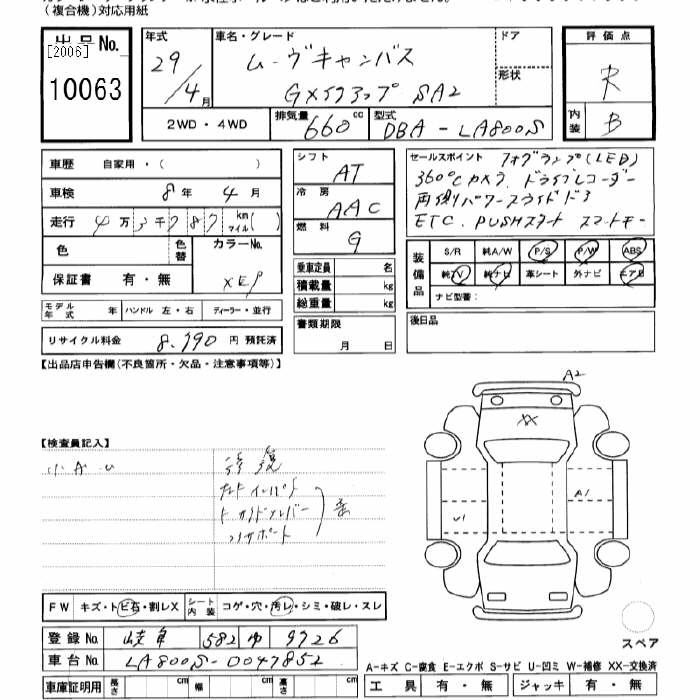 (複合機)対応用紙
出品No.
[2006]
10063
年式
29/4月
車名・グレード
ムーヴキャンバス
Gメイクアップ SA2
ドア
形状
評価点
R
内装
B
2WD・4WD
排気量
660 cc
型式
DBA-LA800S
車歴 自家用・( )
車検 8年 4月
走行 4万3千787 km マイル( )
色
色替
カラーNo.
XE9
保証書 有・無
モデル年式 年 ハンドル 左・右 ディーラー・並行
リサイクル料金 8.790 円 預託済
シフト
AT
冷房
AAC
燃料
G
乗車定員 名
積載量 kg
総重量 kg
書類期限
月 日
セールスポイント フォグランプ(LED)
360°カメラ ドライブレコーダー
両側パワースライドドア
ETC. PUSHスタート スマートキー
装備品
S/R 純A/W P/S P/W ABS
純TV 純ナビ 革シート 外ナビ エアB
ナビ型番:
後日品
【出品店申告欄(不良箇所・欠品・注意事項等)】
【検査員記入】
小A U
修復
サポート
歪
A2
XX
A1
U1
スペア
FW キズ・ト ビ石・割レX シート内装 コゲ・穴・汚レ・シミ・破レ・スレ
登録No. 岐阜 582 ゆ 9726
車台No. LA800S-0047852
車庫証明用 長さ cm 幅 cm 高さ cm
A-キズ C-腐食 E-エクボ S-サビ U-凹ミ W-補修 XX-交換済
工具 有・無 ジャッキ 有・無